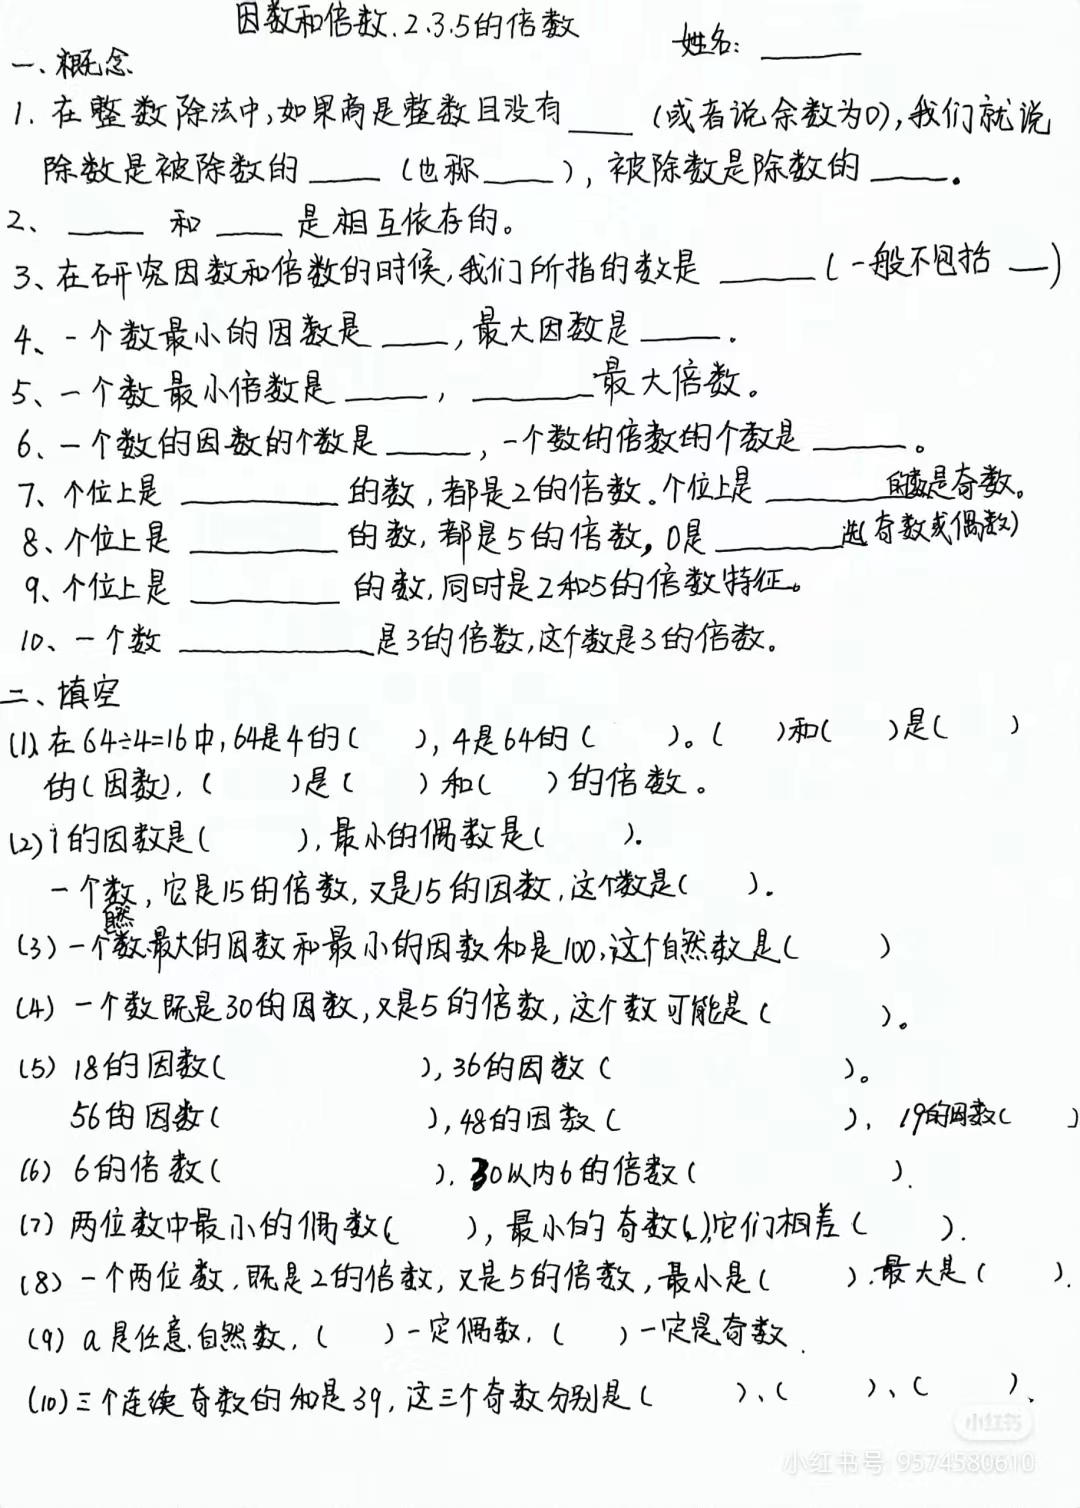 因数和倍数.2.3.5的倍数
姓名: ______
一、概念
1. 在整数除法中,如果商是整数且没有____ (或者说余数为0),我们就说
除数是被除数的 ____ (也称____), 被除数是除数的 ____.
2、 ____ 和 ____ 是相互依存的。
3、在研究因数和倍数的时候,我们所指的数是 ______ (一般不包括 __)
4、一个数最小的因数是 ____, 最大因数是 ____.
5、一个数最小倍数是 ____, ______最大倍数。
6、一个数的因数的个数是 ____, 一个数的倍数的个数是 ____。
7、个位上是 ________ 的数,都是2的倍数。个位上是 ________的数是奇数。
8、个位上是 ________ 的数,都是5的倍数,0是 ________选(奇数或偶数)
9、个位上是 ________ 的数,同时是2和5的倍数特征。
10、一个数 __________是3的倍数,这个数是3的倍数。
二、填空
(1)、在64÷4=16中,64是4的( ), 4是64的( )。( )和( )是( )
的(因数), ( )是( )和( )的倍数。
(2) 1的因数是( ), 最小的偶数是( ).
一个数,它是15的倍数,又是15的因数,这个数是( ).
(3) 一个自然数最大的因数和最小的因数和是100,这个自然数是( )
(4) 一个数既是30的因数,又是5的倍数,这个数可能是( )。
(5) 18的因数( ), 36的因数( )。
56的因数( ), 48的因数( ), 19的因数( )
(6) 6的倍数( ). 30以内6的倍数( ).
(7) 两位数中最小的偶数( ), 最小的奇数( ),它们相差( ).
(8) 一个两位数,既是2的倍数,又是5的倍数,最小是( ).最大是( ).
(9) a是任意自然数,( )一定偶数,( )一定是奇数.
(10) 三个连续奇数的和是39,这三个奇数分别是( )、( )、( ).
小红书
小红书号 9574580610